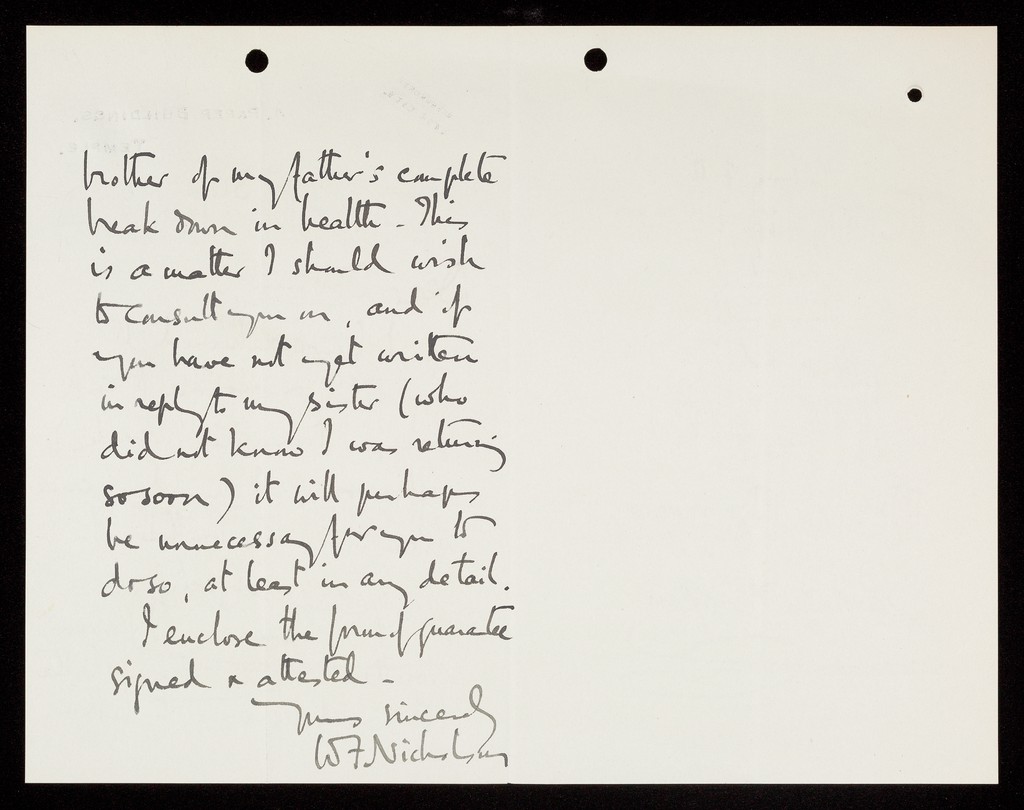 brother of my father's complete
break down in health - This
is a matter I should wish
to consult you on, and if
you have not yet written
in reply to my sister (who
did not know I was returning
so soon) it will perhaps
be unnecessary for you to
do so, at least in any detail.
I enclose the form of guarantee
signed & attested -
Yours sincerely
W F Nicholson